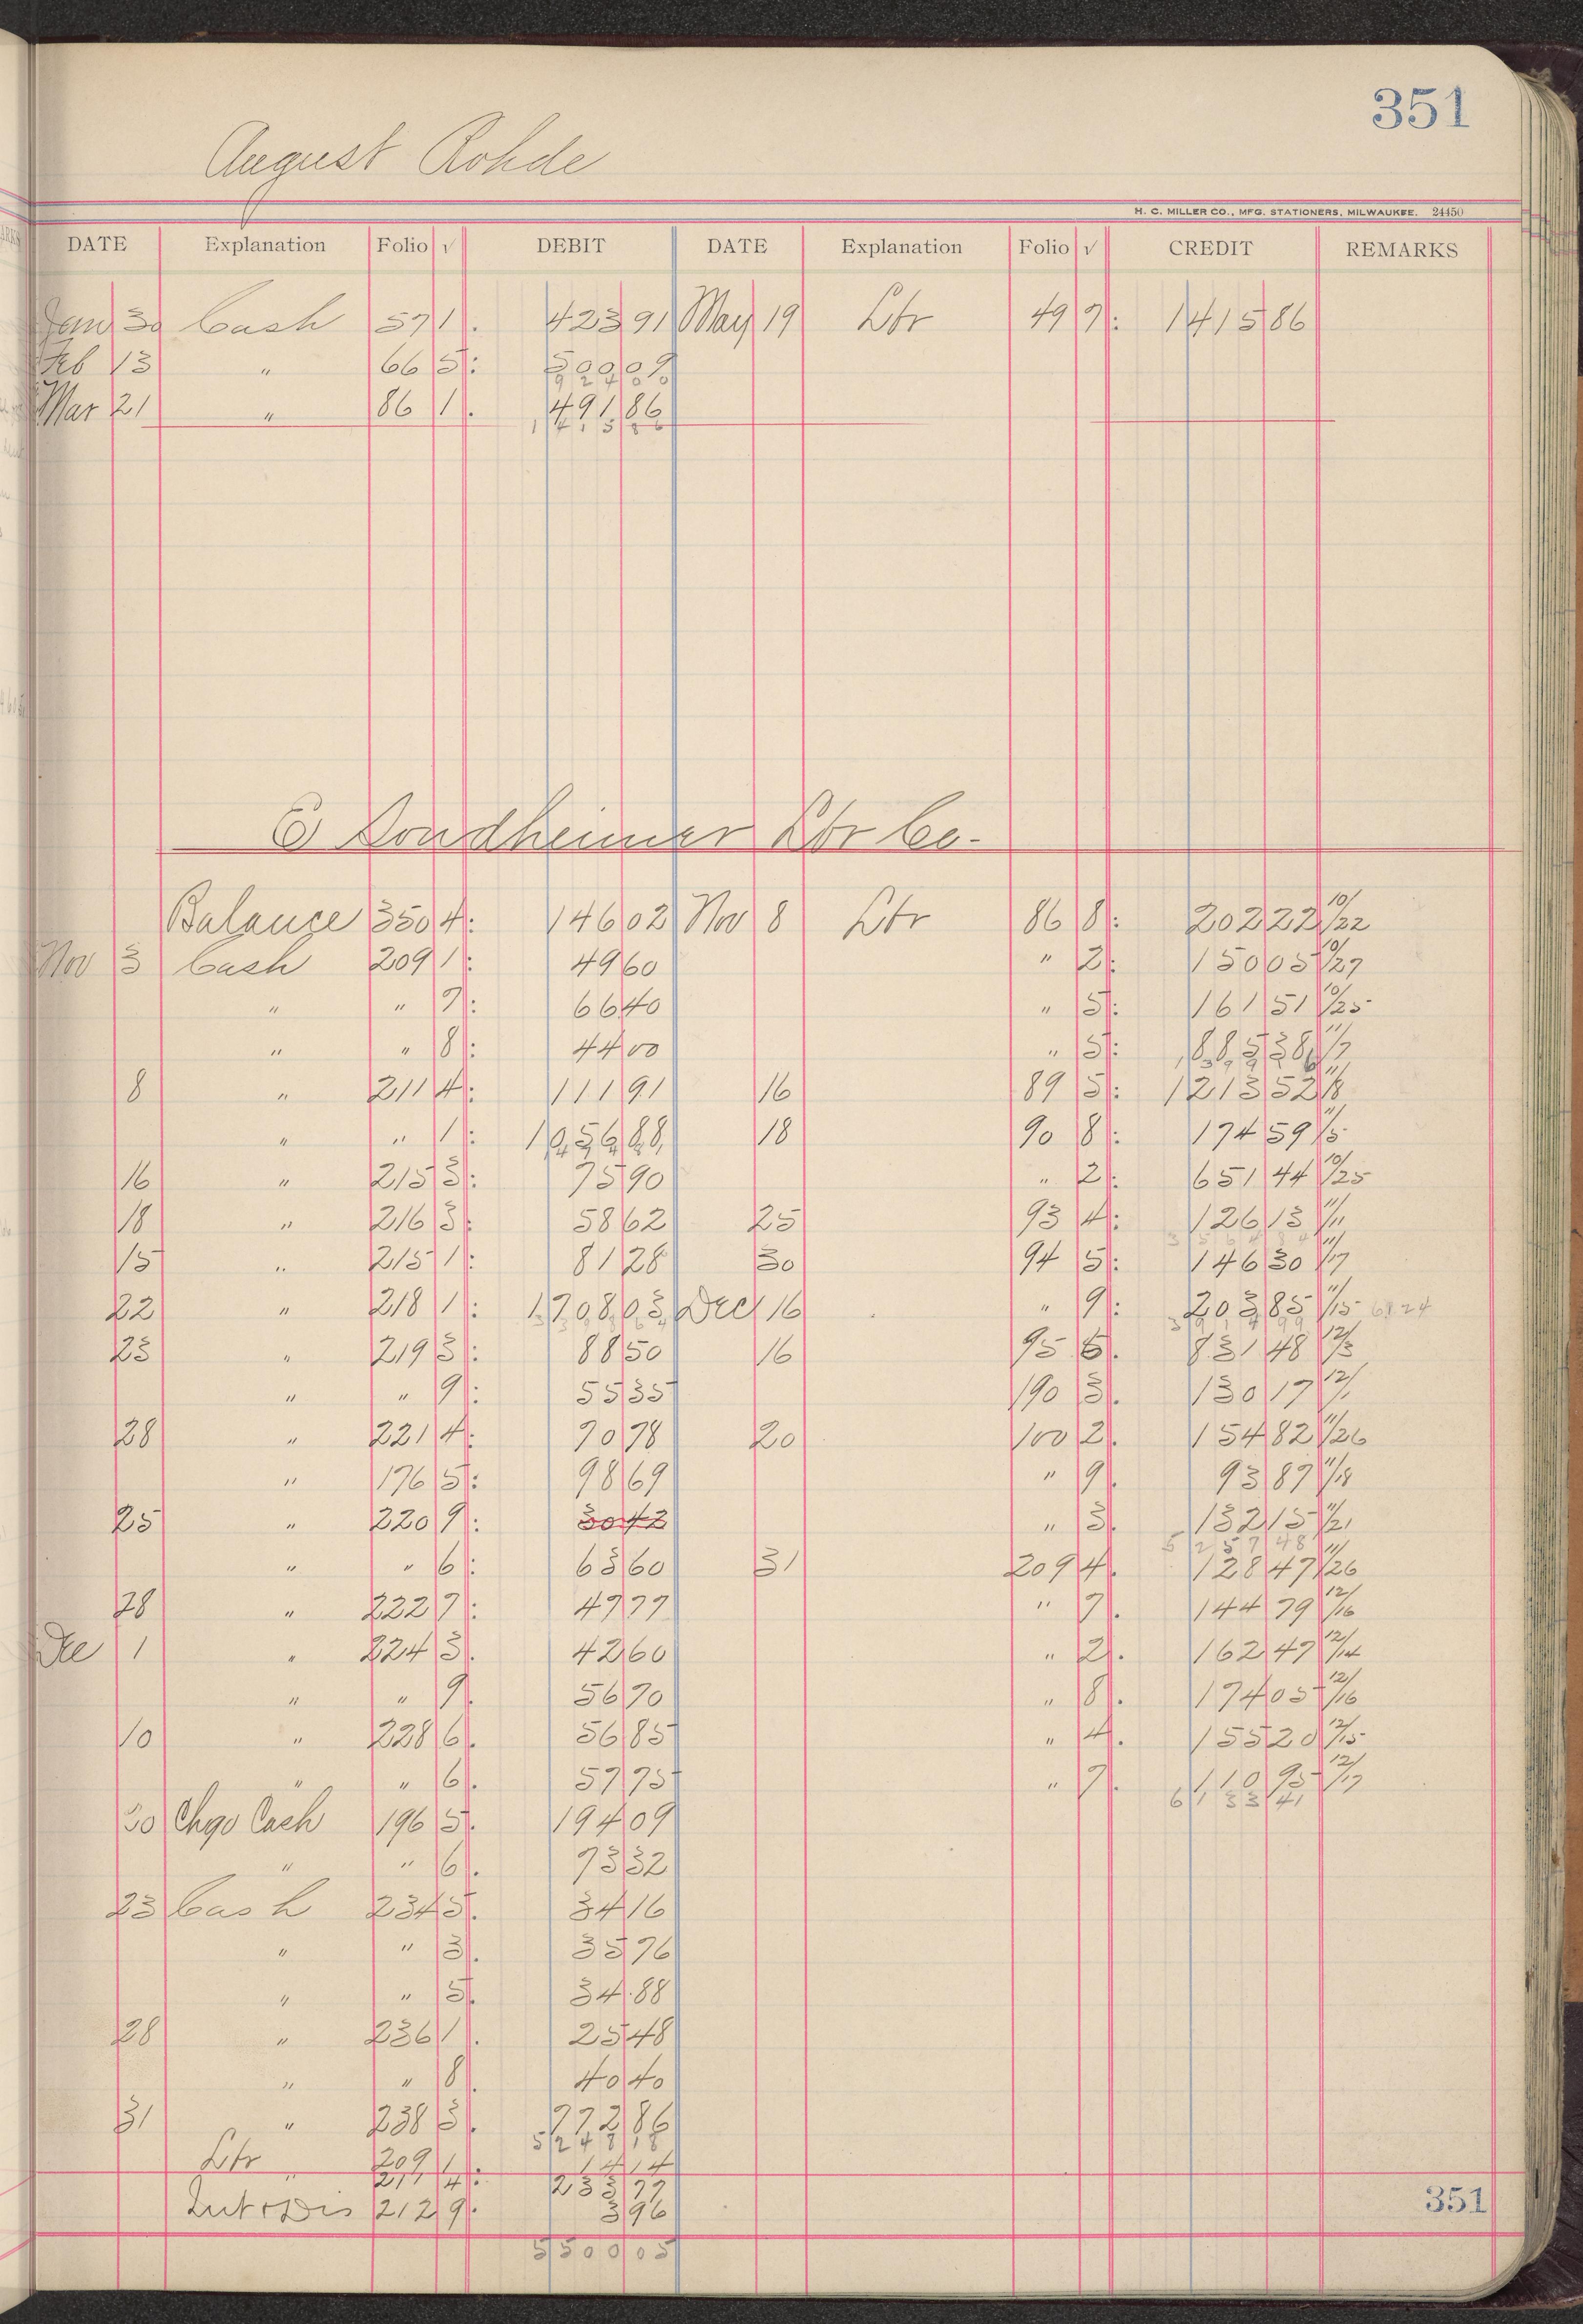 351
August Rohde
H. C. MILLER CO., MFG. STATIONERS, MILWAUKEE. 24450
DATE Explanation Folio √ DEBIT DATE Explanation Folio √ CREDIT REMARKS
Jan 30 Cash 57 1. 423 91 May 19 Lbr 49 7: 1415 86
Feb 13 " 66 5: 500 09
924 00
Mar 21 " 86 1. 491 86
1415 86
E Sondheimer Lbr Co.
Balance 350 4: 146 02 Nov 8 Lbr 86 8: 202 22 10/22
Nov 3 Cash 209 1: 49 60 " 2: 150 05 10/27
" " 7: 66 40 " 5: 161 51 10/25
" " 8: 44 00 " 5: 885 38 11/7
8 " 211 4: 111 91 16 89 5: 1213 52 11/8
" " 1: 1056 88 18 90 8: 174 59 11/5
16 " 215 3: 75 90 " 2: 651 44 10/25
18 " 216 3: 58 62 25 93 4: 126 13 11/11
15 " 215 1: 81 28 30 94 5: 146 30 11/17
22 " 218 1: 1708 03 Dec 16 " 9: 203 85 11/15 68 24
23 " 219 3: 88 50 16 95 6. 831 48 12/3
" " 9: 55 35 190 3. 130 17 12/1
28 " 221 4: 70 78 20 100 2. 154 82 11/26
" 176 5: 98 69 " 9. 93 87 11/18
25 " 220 9: 30 42 " 3. 132 15 11/21
5257 48
" " 6: 63 60 31 209 4. 128 47 11/26
28 " 222 7: 47 77 " 7. 144 79 12/16
Dec 1 " 224 3. 42 60 " 2. 162 47 12/14
" " 9. 56 70 " 8. 174 05 12/16
10 " 228 6. 56 85 " 4. 155 20 12/15
" " 6. 57 75 " 7. 110 95 12/17
6133 41
30 Chgo Cash 196 5. 194 09
" " 6. 73 32
23 Cash 234 5. 34 16
" " 3. 35 76
" " 5. 34.88
28 " 236 1. 25 48
" " 8. 40 40
31 " 238 3. 772 86
5248 18
Lbr 209 1 14 14
" 211 4: 233 77
Int & Dis 212 9. 3 96
351
5500 05